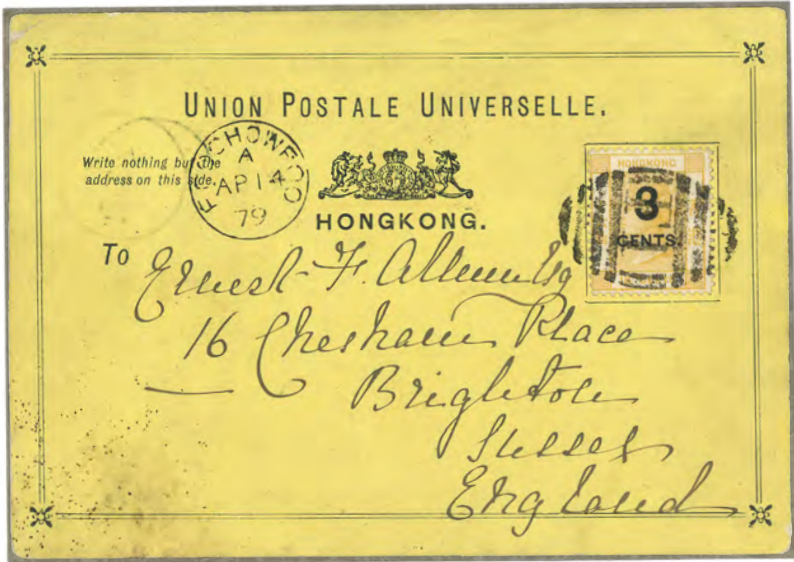 UNION POSTALE UNIVERSELLE.
Write nothing but the
address on this side.
FOOCHOWFOO
A
AP 14
79
HONGKONG
3
CENTS.
HONGKONG.
To Ernest F. Allen Esq
16 Chesham Place
Brighton
Sussex
England